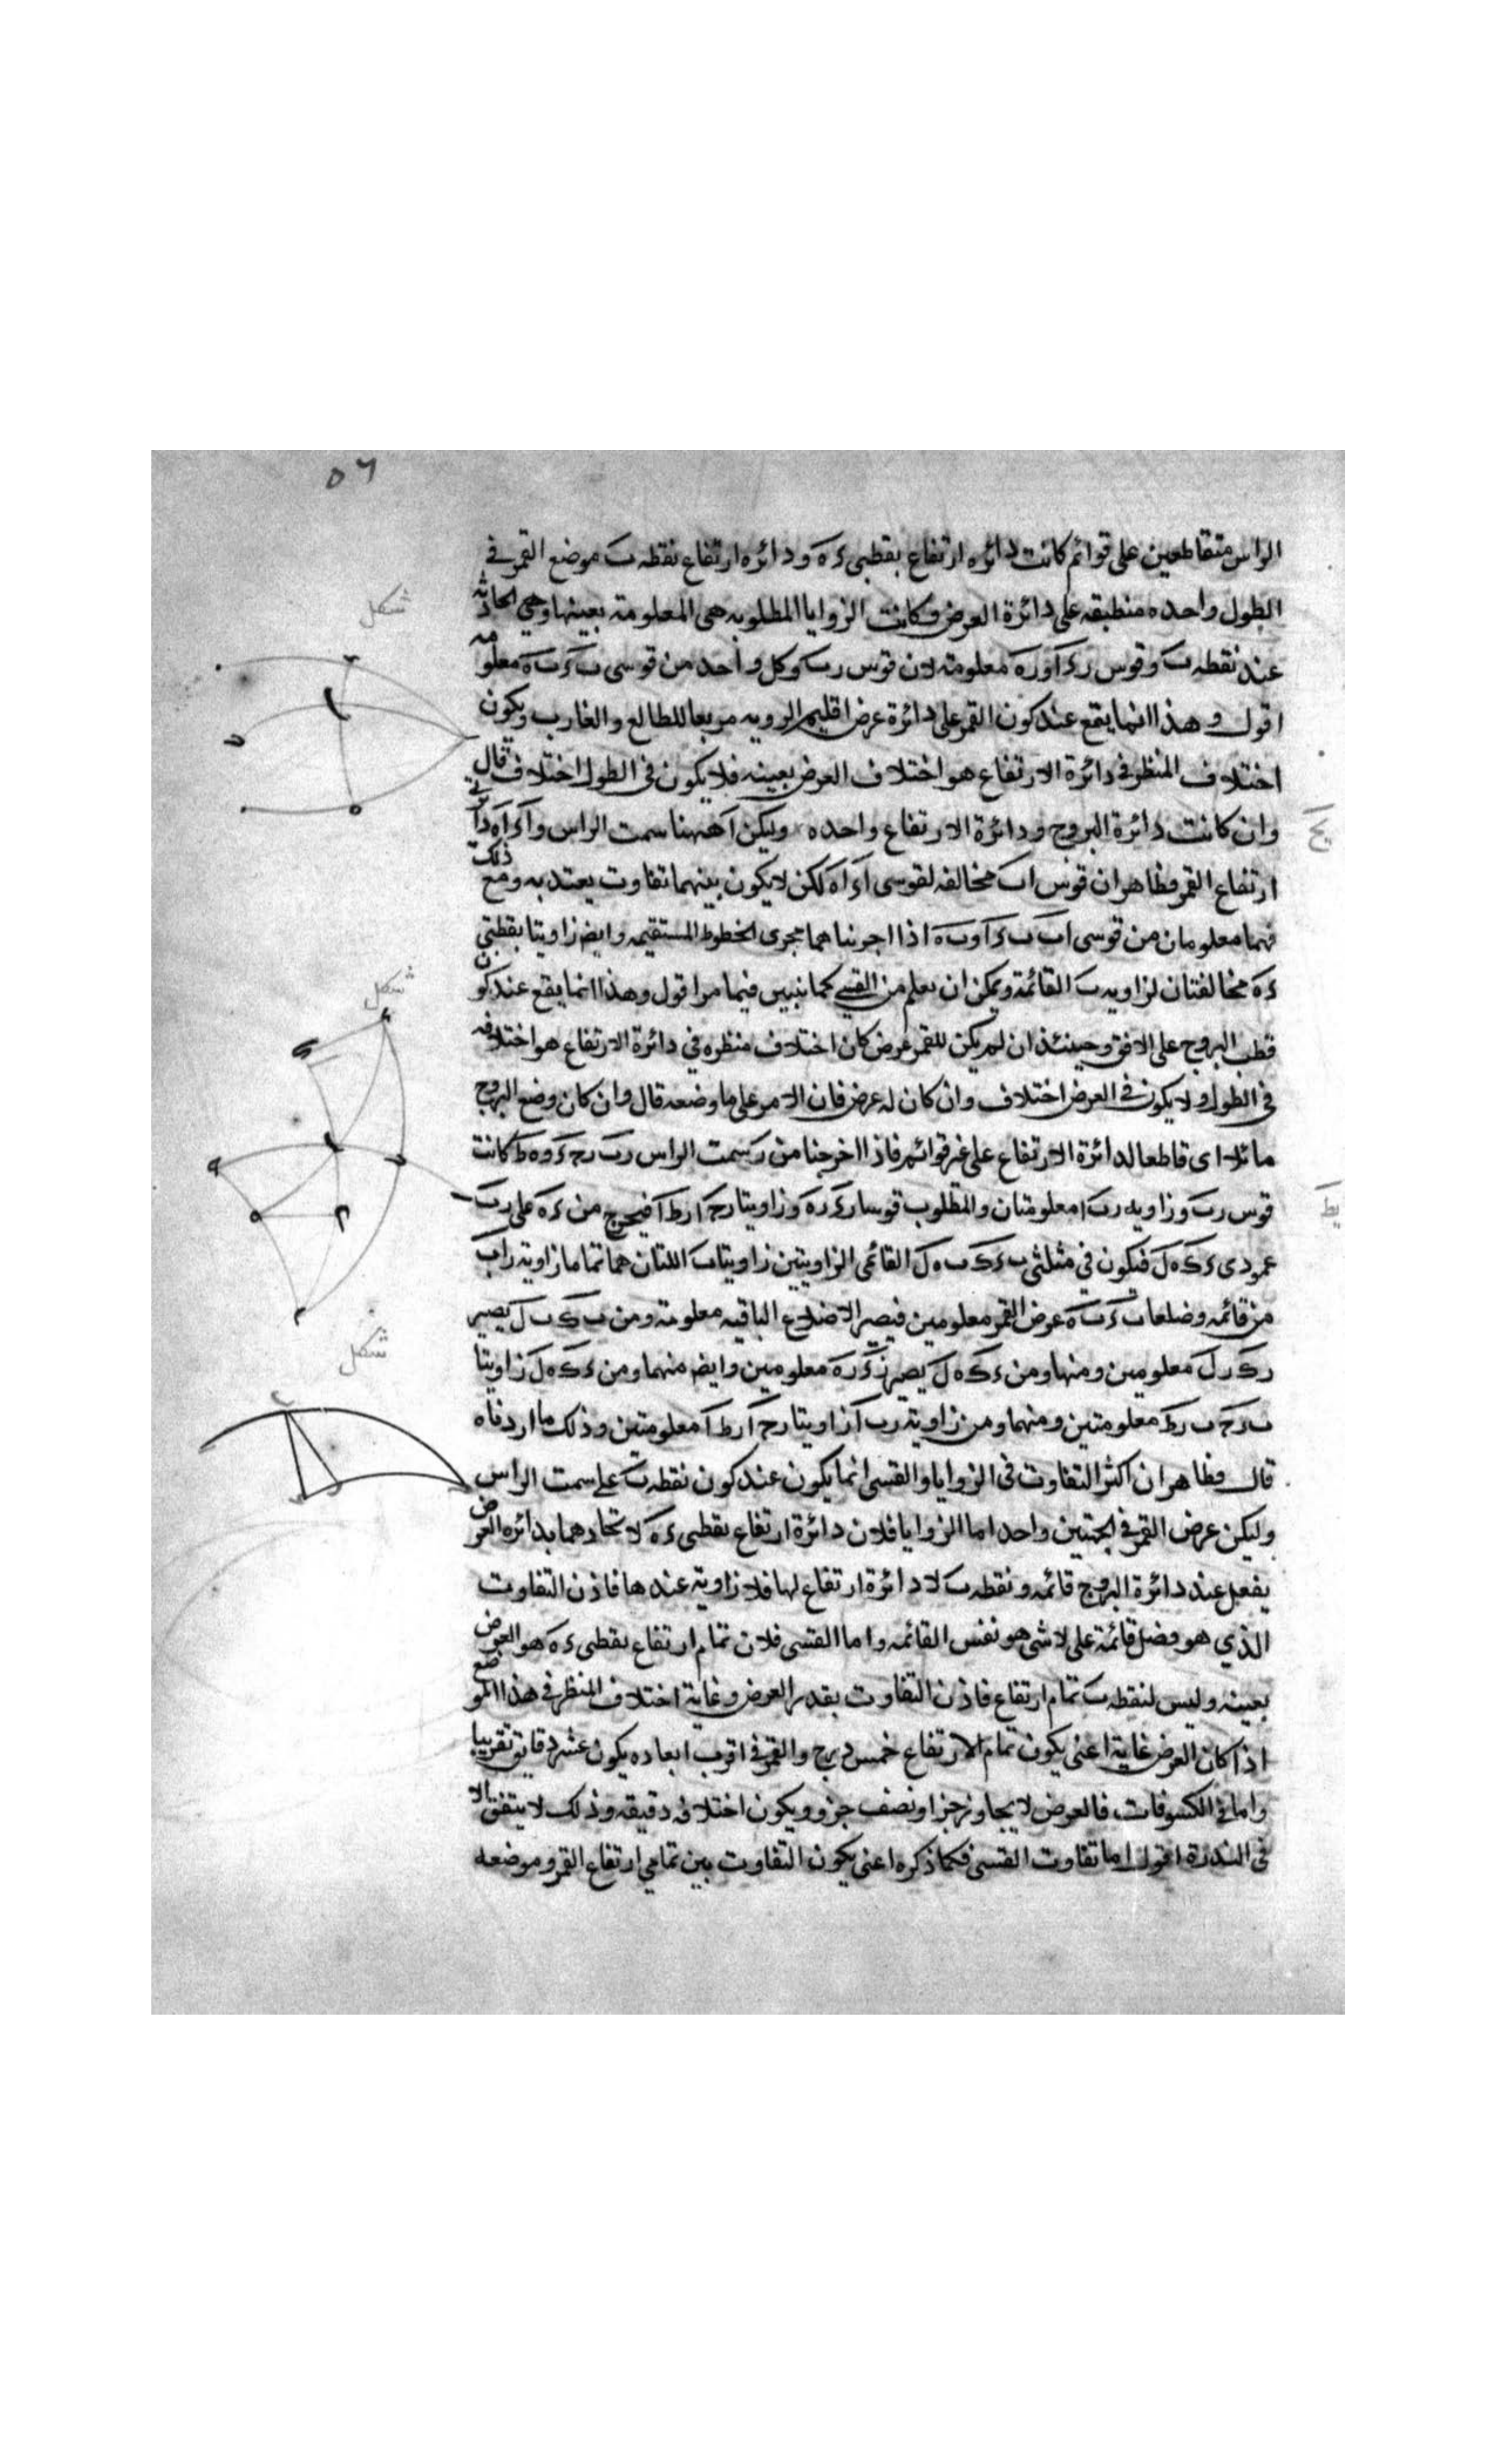 ٥٦
الراس متقاطعين على قوائم كانت دائره ارتفاع نقطتى ءَ هَ ودائره ارتفاع نقطه بَ موضع القمر فى
الطول واحده منطبقه على دائرة العرض وكانت الزوايا المطلوبه هى المعلومة بعينها وهى الحادثه
عند نقطه بَ وقوس رءَ اَو رهَ معلومة لان قوس رب وكل واحد من قوسى بءَ بهَ معلومه
اقول وهذا انما يقع عند كون القمر على دائرة عرض اقليم الرويه مربعا للطالع والغارب ويكون
اختلاف المنظر فى دائرة الارتفاع هو اختلاف العرض بعينه فلا يكون فى الطول اختلاف قال
وان كانت دائرة البروج ودائرة الارتفاع واحده وليكن اَ ههنا سمت الراس واَءَ اَهَ دائرتى
ارتفاع القمر فظاهر ان قوس اب مخالفه لقوسى اَءَ اَهَ لكن لا يكون بينهما تفاوت يعتد به ومع ذلك
فهما معلومان من قوسى اب بءَ اَو بهَ اذا اجريناهما مجرى الخطوط المستقيمه وايض زاويتا نقطتى
ءَ هَ مخالفتان لزاويه بَ القائمة ويمكن ان يعلم من القسى كما نبين فيما مر اقول وهذا انما يقع عند كون
قطب البروج على الافق وحينئذ ان لم يكن للقمر عرض كان اختلاف منظره في دائرة الارتفاع هو اختلافه
فى الطول ولا يكون فى العرض اختلاف وان كان له عرض فان الامر على ما وضعه قال وان كان وضع البروج
مائلا اى قاطعا لدائرة الارتفاع على غير قوائم فاذا اخرجنا من رَ سمت الراس رب رحءَ وهط كانت
قوس رب وزاويه رب ا معلومتان والمطلوب قوسا رءَ رهَ وزاويتا رح ا رط ا فيخرج من ءَ هَ على رب
عمودى ءَك هَل فيكون في مثلثى بءَك بهل القائمى الزاويتين زاويتا ب اللتان هما تماما زاوية راب
من قائمه وضلعا بءَ بهَ عرض القمر معلومين فيصير الاضلاع الباقيه معلومة ومن بك بل يصير
رك رل معلومين ومنها ومن ءَك هَل يصير رءَ رهَ معلومين وايض منهما ومن ءَك هَل زاويتا
ب رح ب رط معلومتين ومنهما ومن زاوية رب اَ زاويتا رح اَ رط اَ معلومتين وذلك ما اردناه
قال وظاهر ان اكثر التفاوت فى الزوايا والقسى انما يكون عند كون نقطه بَ على سمت الراس
وليكن عرض القمر فى الجهتين واحد اما الزوايا فلان دائرة ارتفاع نقطتى ءَ هَ لاتحادهما بدائره العرض
يفعل عند دائرة البروج قائمه ونقطه ب لا دائرة ارتفاع لها فلا زاوية عندها فاذن التفاوت
الذي هو فضل قائمة على لا شى هو نفس القائمه واما القسى فلان تمام ارتفاع نقطتى ءَ هَ هو العرض
بعينه وليس لنقطه ب تمام ارتفاع فاذن التفاوت بقدر العرض وغاية اختلاف المنظر فى هذا الموضع
اذا كان العرض غاية اعنى يكون تمام الارتفاع خمس درج والقمر فى اقرب ابعاده يكون عشر دقايق تقريبا
واما فى الكسوفات فالعرض لا يجاوز جزا ونصف جزو ويكون اختلافه دقيقه وذلك لا يتفق الا
فى الندرة اقول اما تفاوت القسى فكما ذكره اعنى يكون التفاوت بين تمامي ارتفاع القمر وموضعه
شكل
شكل
شكل
يط